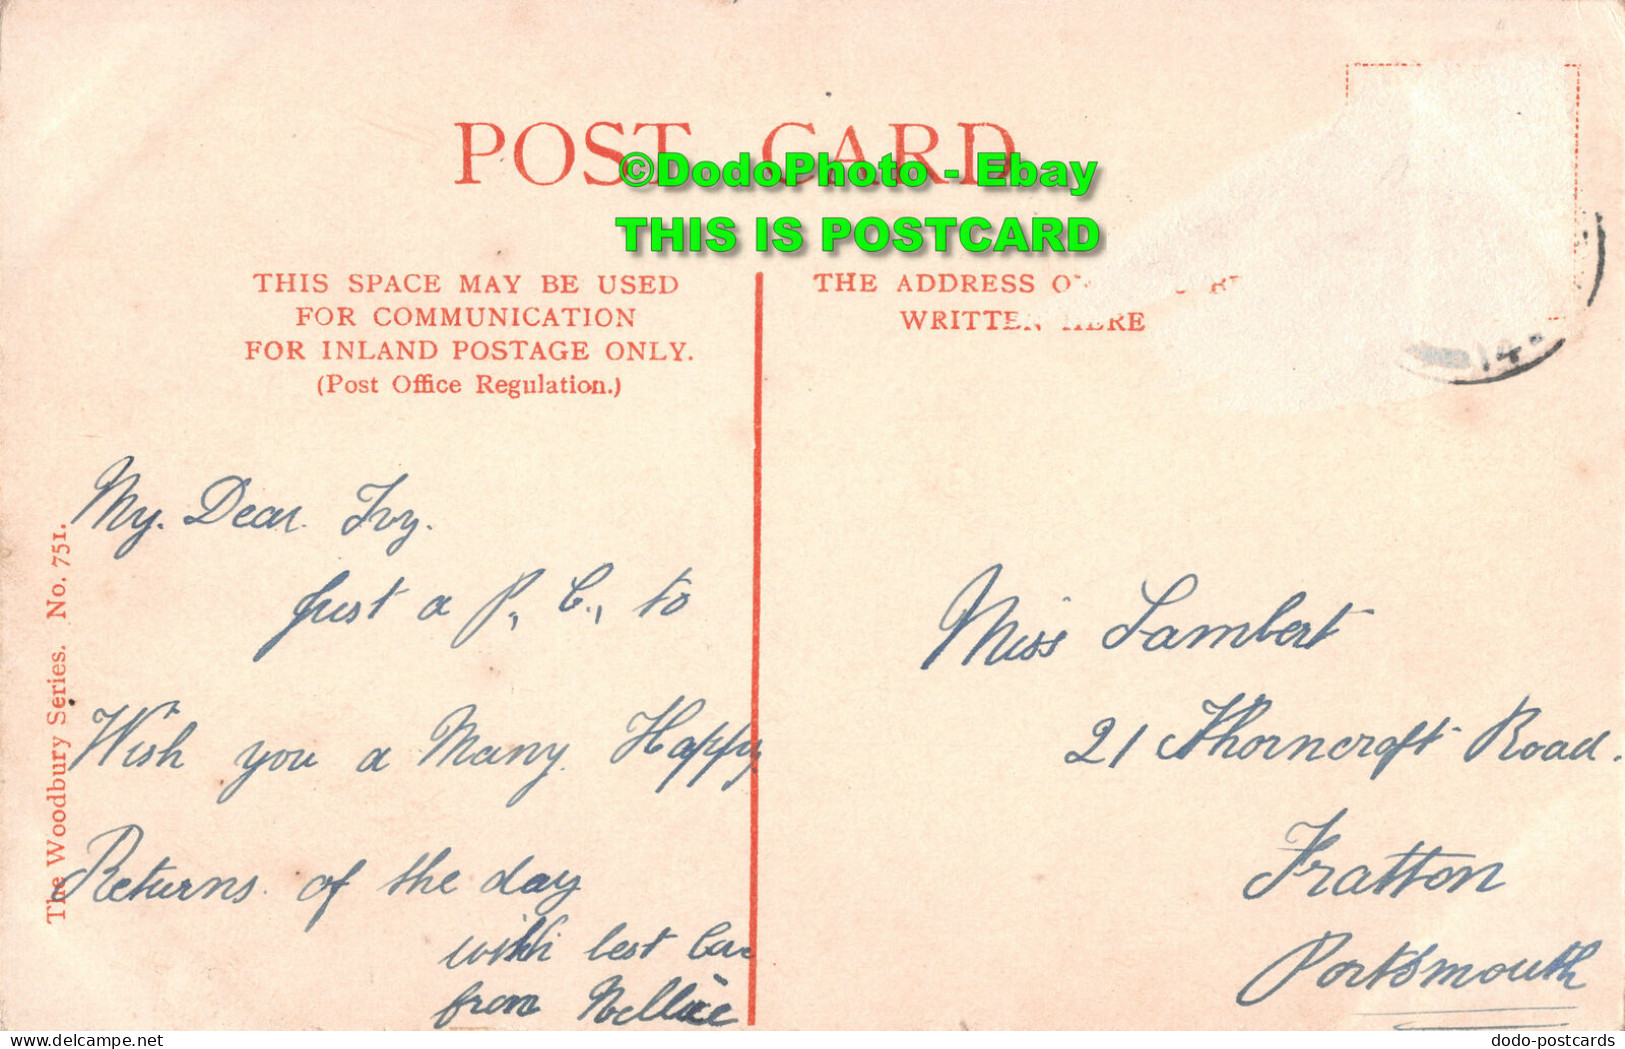 POST CARD
©DodoPhoto - Ebay
THIS IS POSTCARD
THIS SPACE MAY BE USED
FOR COMMUNICATION
FOR INLAND POSTAGE ONLY.
(Post Office Regulation.)
THE ADDRESS
WRITTEN HERE
14
The Woodbury Series. No. 751.
My. Dear. Ivy.
Just a P. C., to
Wish you a Many. Happy
Returns. of the day
with best
from Nellie
Miss Lambert
21 Thorncroft Road.
Fratton
Portsmouth
delcampe.net
dodo-postcards